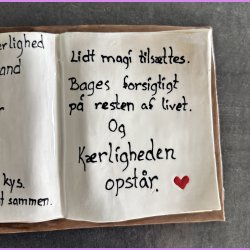 ærlighed
and
r
kys.
t sammen.
Lidt magi tilsættes.
Bages forsigtigt
på resten af livet.
Og
Kærligheden
opstår.